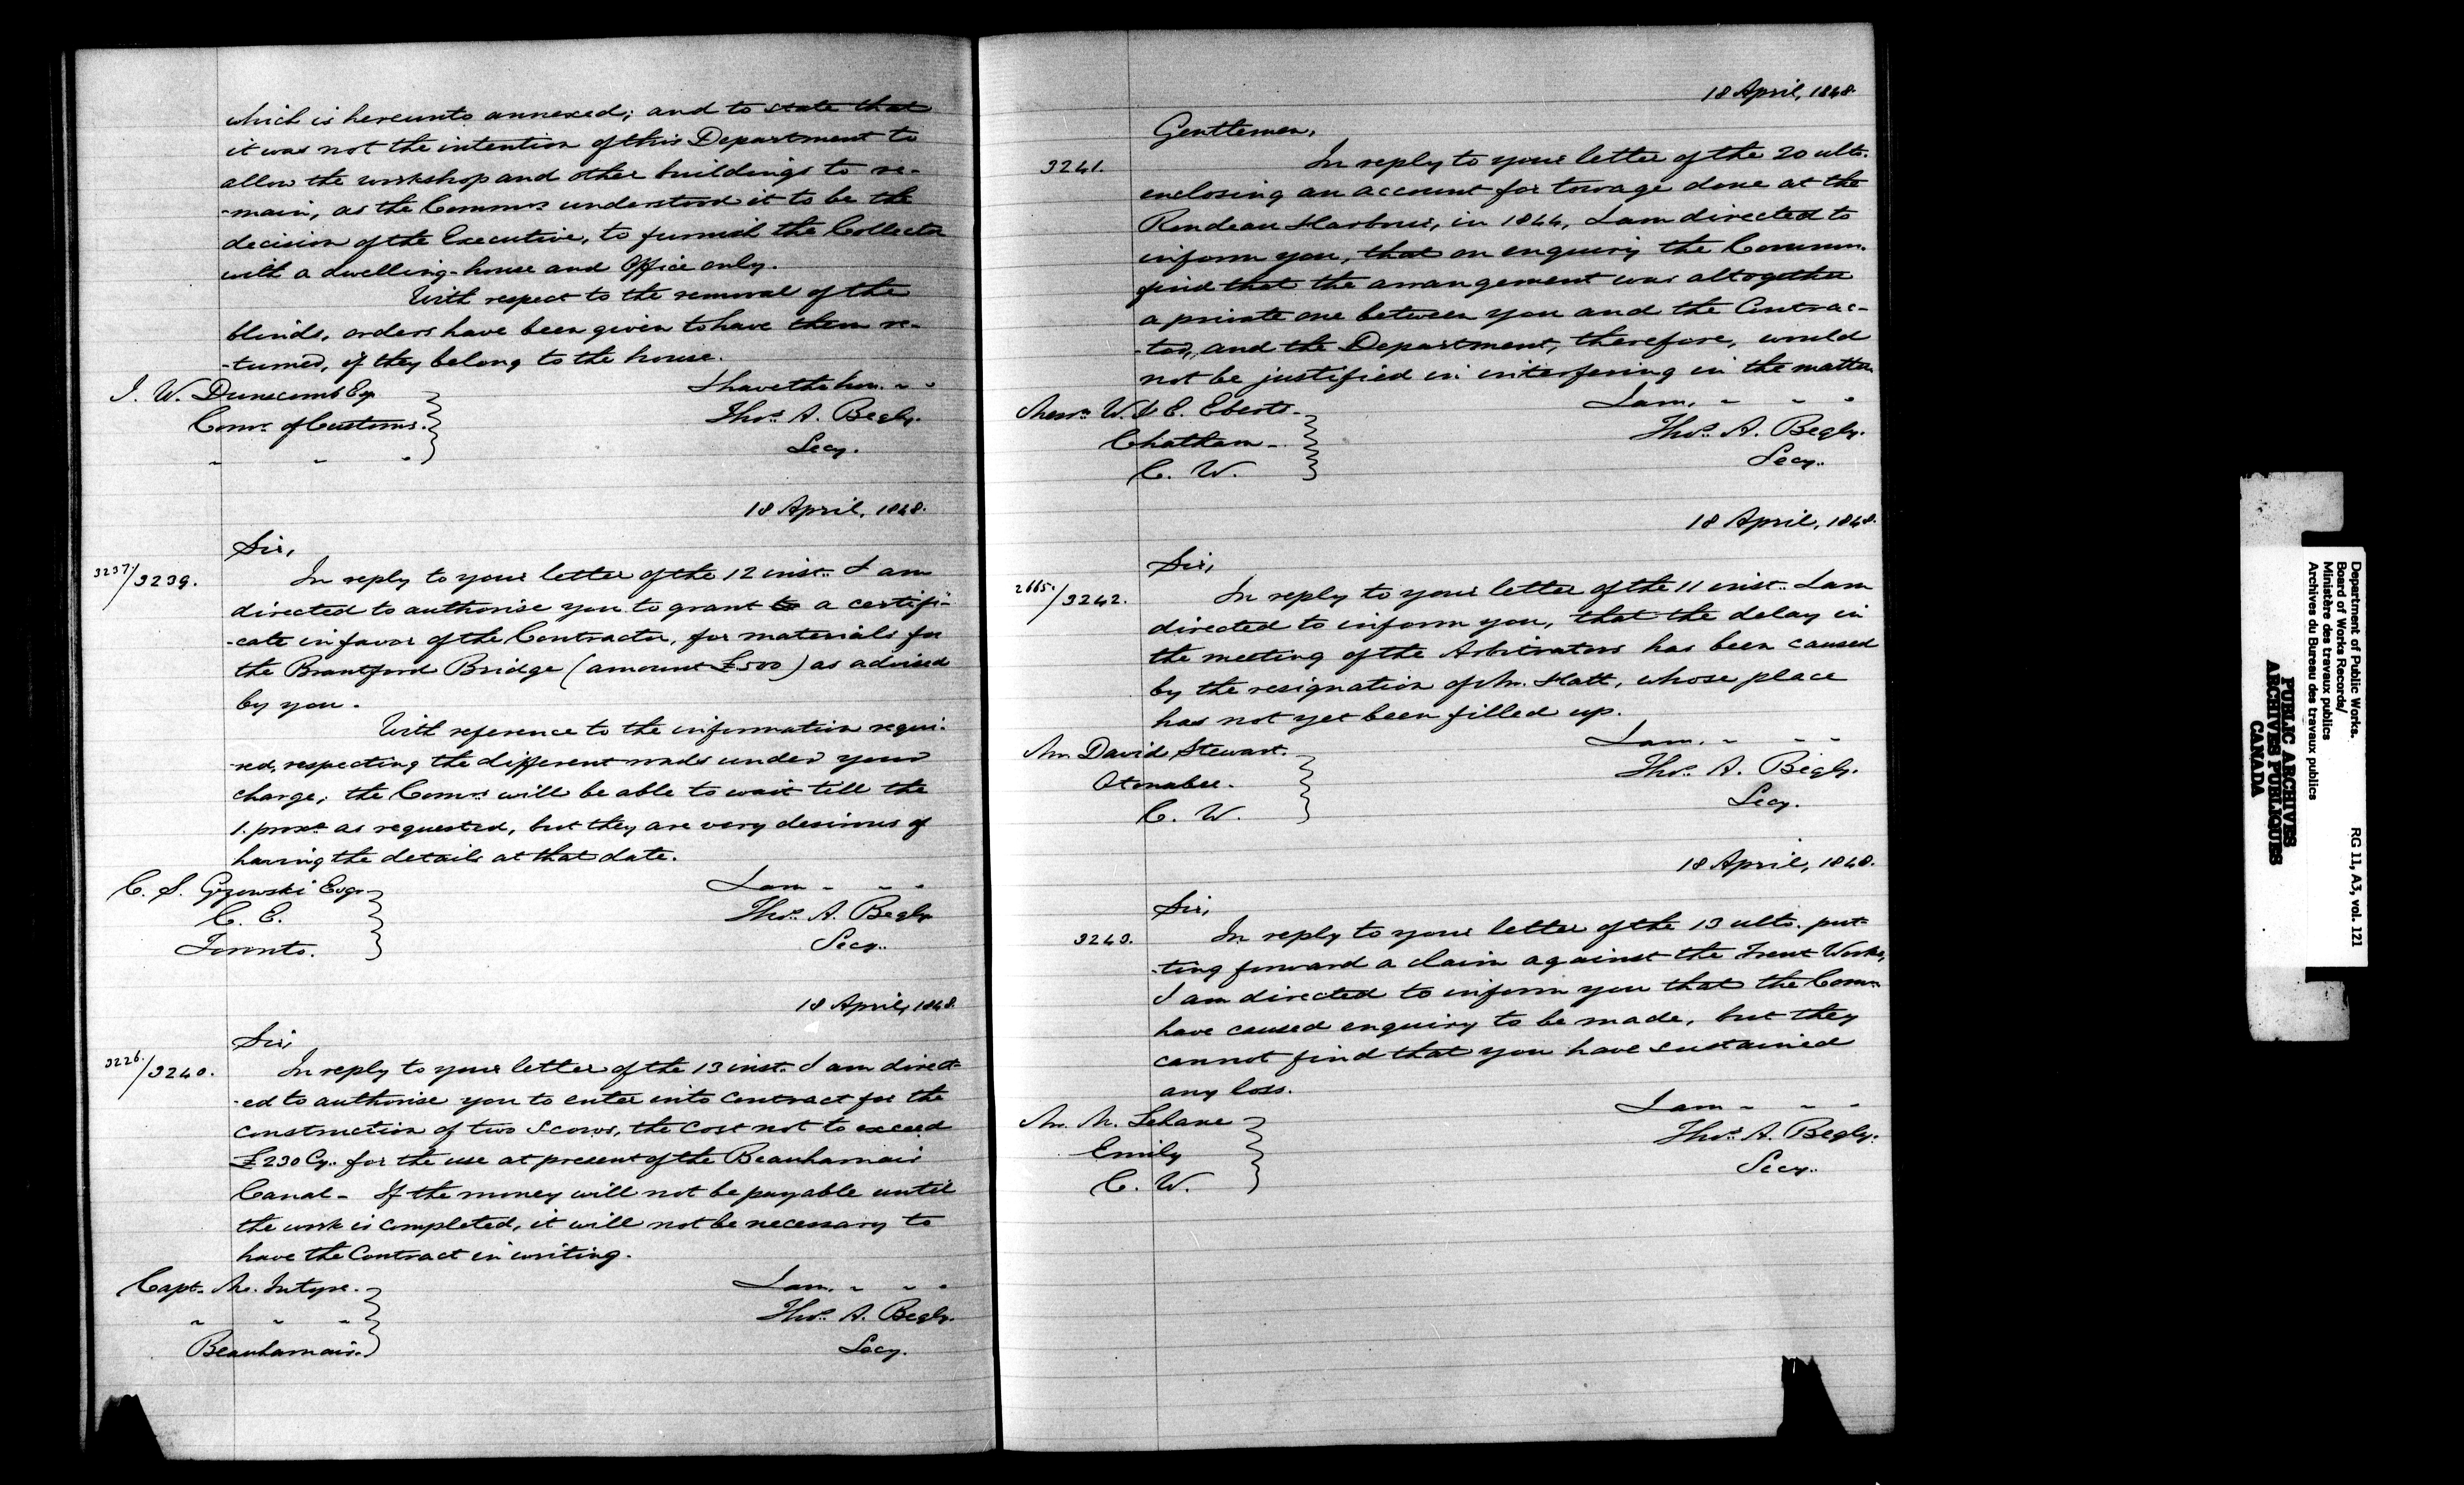 which is hereunto annexed; and to state that
it was not the intention of this Department to
allow the workshop and other buildings to re-
-main, as the Commrs understood it to be the
decision of the Executive, to furnish the Collector
with a dwelling-house and Office only.
With respect to the removal of the
blinds, orders have been given to have them re-
-turned, if they belong to the house.
I have the hon. " "
J. W. Dunscomb Esq.
Thos. A. Begly.
Comr. of Customs.
Secy.
" " "
18 April, 1848.
Sir,
3237./3239.
In reply to your letter of the 12 inst. I am
directed to authorise you to grant to a certifi-
-cate in favor of the Contractor, for materials for
the Brantford Bridge (amount £500) as advised
by you.
With reference to the information requi-
-red, respecting the different roads under your
charge, the Comrs. will be able to wait till the
1. proxo. as requested, but they are very desirous of
having the details at that date.
C. S. Gzowski Esqr.
I am " " "
C. E.
Thos. A. Begly
Toronto.
Secy.
18 April, 1848.
Sir,
3226./3240.
In reply to your letter of the 13 inst. I am direct-
-ed to authorise you to enter into contract for the
construction of two Scows, the cost not to exceed
£230 Cy. for the use at present of the Beauharnais
Canal - If the money will not be payable until
the work is completed, it will not be necessary to
have the Contract in writing.
Capt. Mc.Intyre.
I am. " " "
" " "
Thos. A. Begly.
Beauharnais.
Secy.
18 April, 1848.
Gentlemen,
3241.
In reply to your letter of the 20 ulto.
enclosing an account for towage done at the
Rondeau Harbour, in 1844, I am directed to
inform you, that on enquiry the Commrs.
find that the arrangement was altogether
a private one between you and the Contrac-
-tor, and the Department, therefore, would
not be justified in interfering in the matter
I am, " " "
Messrs W. & E. Eberts.
Thos. A. Begly.
Chatham.
Secy.
C. W.
18 April, 1848.
Sir,
2665./3242.
In reply to your letter of the 11 inst. I am
directed to inform you, that the delay in
the meeting of the Arbitrators has been caused
by the resignation of Mr. Hatt, whose place
has not yet been filled up.
I am. " " "
Mr. David Stewart.
Thos. A. Begly.
Otonabee.
Secy.
C. W.
18 April, 1848.
Sir,
3243.
In reply to your letter of the 13 ulto. put-
-ting forward a claim against the Trent Works,
I am directed to inform you that the Comrs
have caused enquiry to be made, but they
cannot find that you have sustained
any loss.
I am " " "
Mr. M. Lehane
Thos. A. Begly.
Emily
Secy.
C. W.
Department of Public Works.
Board of Works Records/
Ministère des travaux publics
Archives du Bureau des travaux publics
RG 11, A3, vol. 121
PUBLIC ARCHIVES
ARCHIVES PUBLIQUES
CANADA